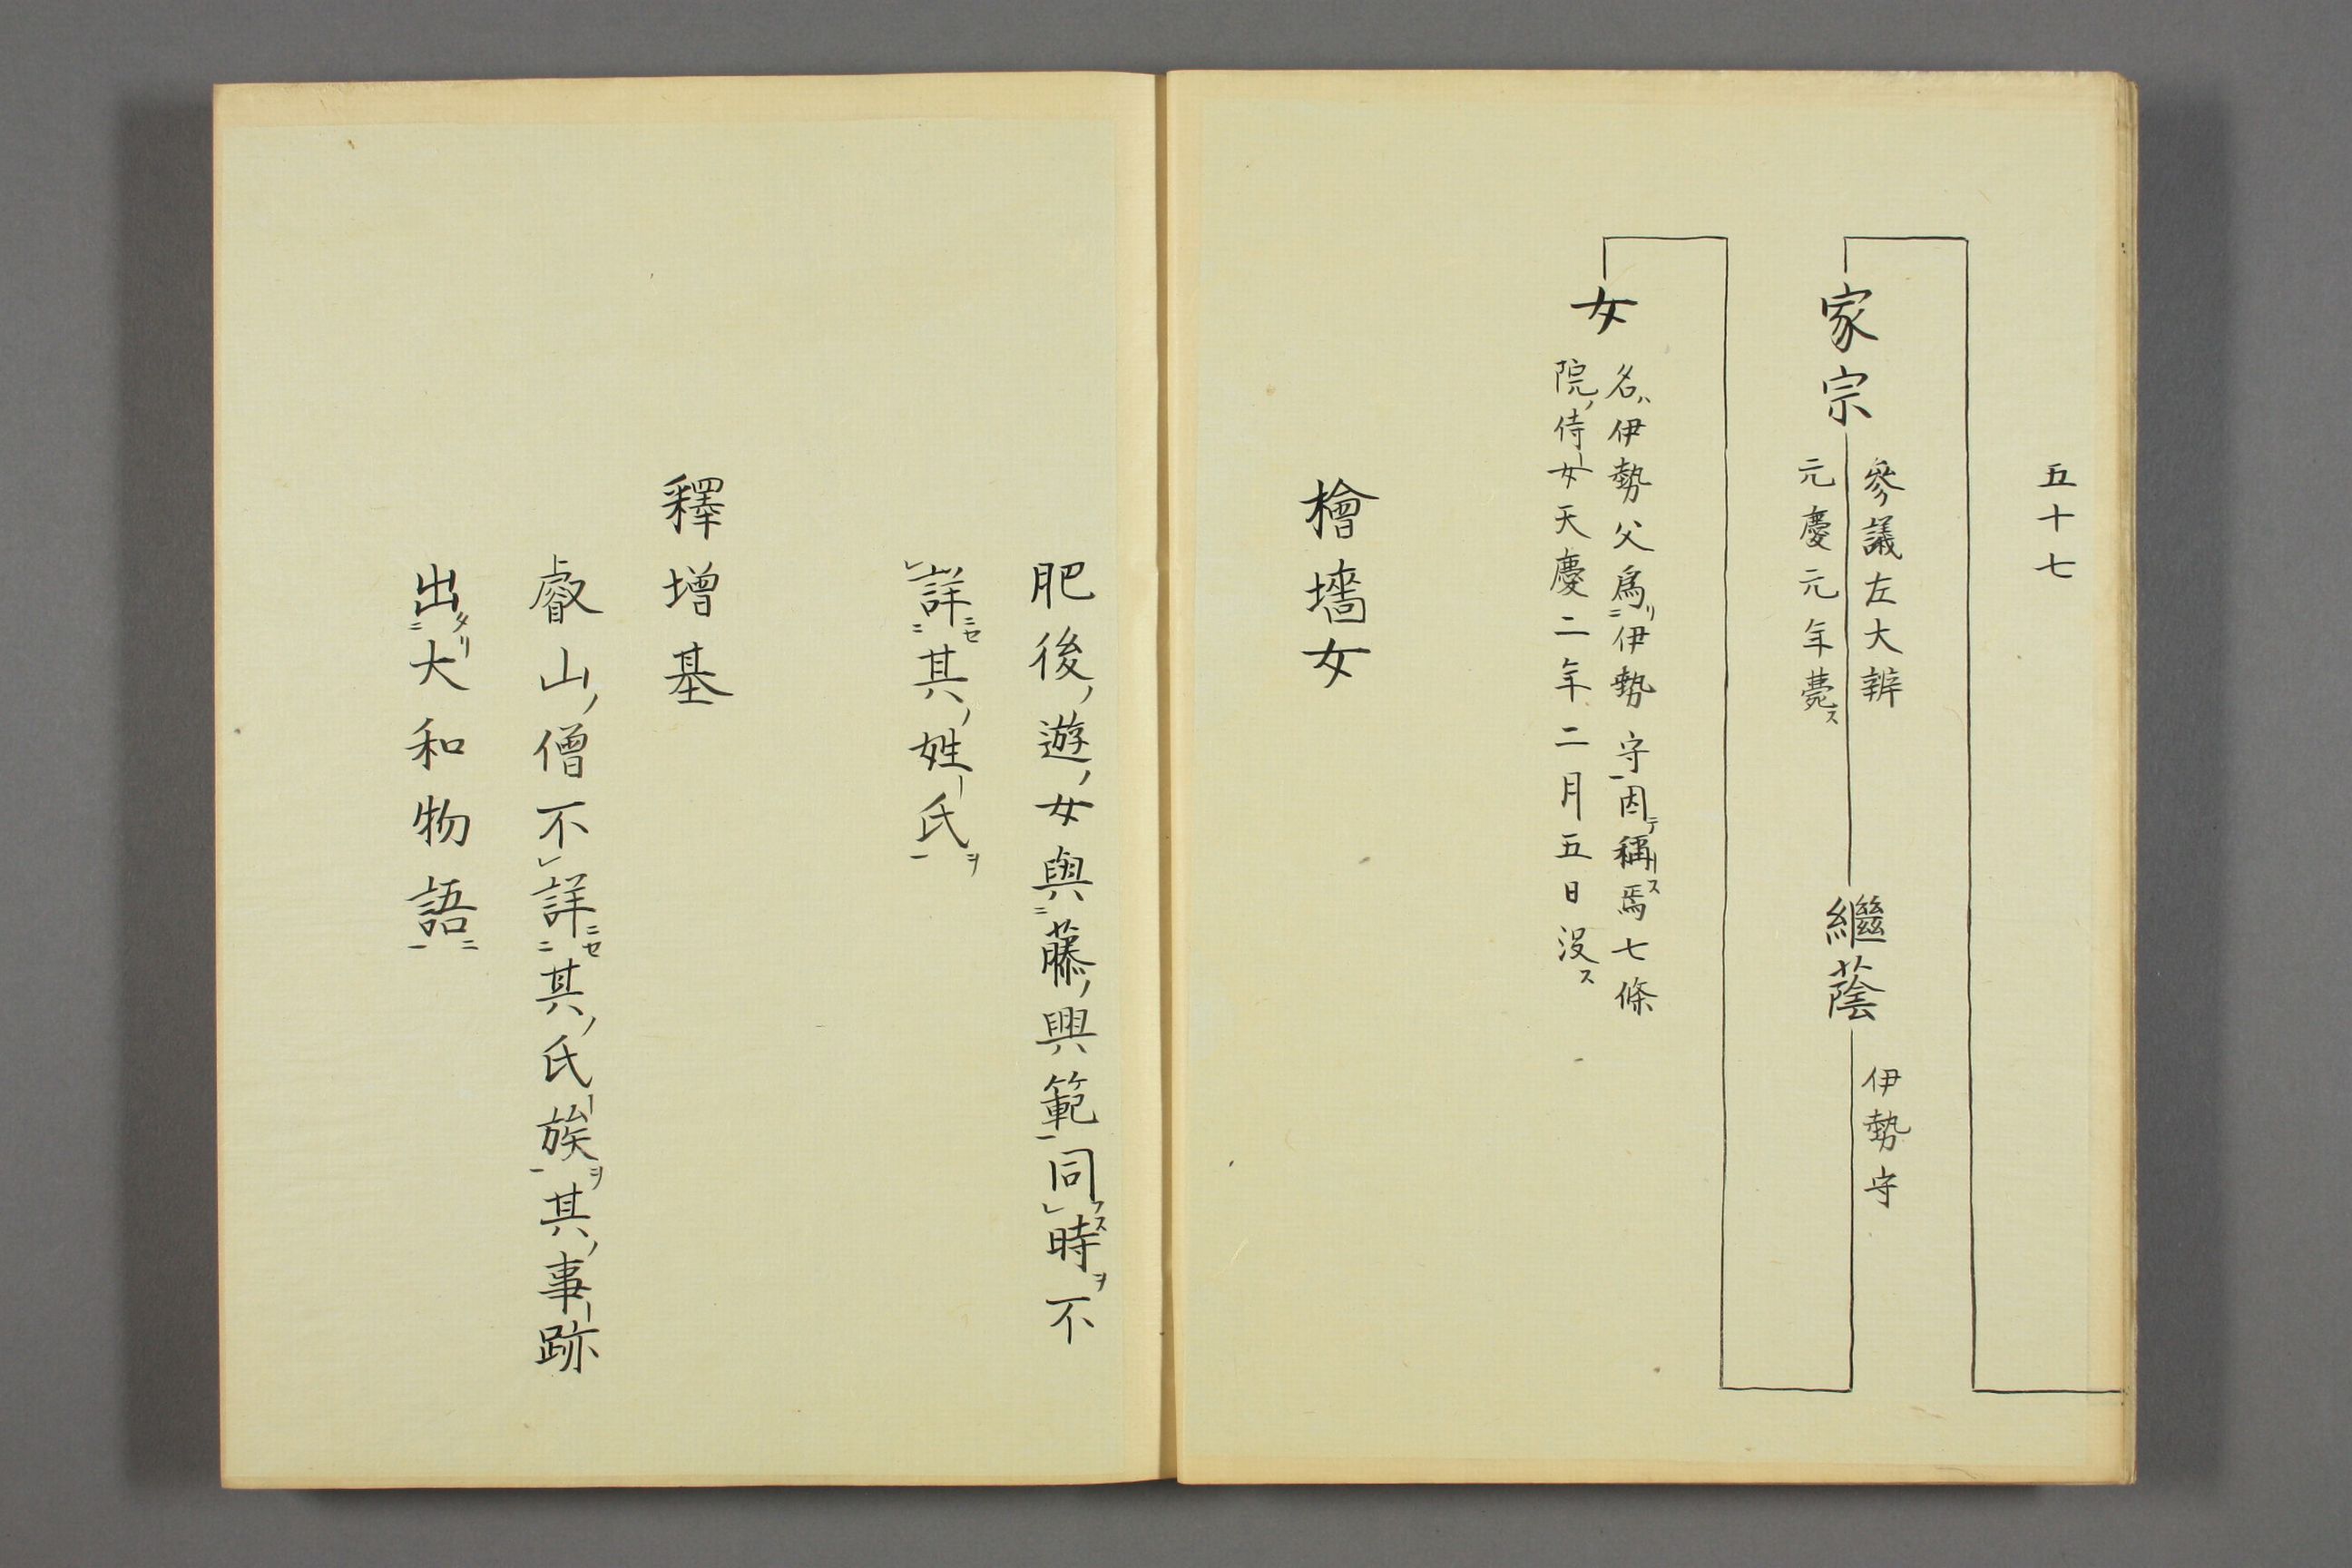 五十七
家宗
參議左大辨
元慶元年薨ス
繼蔭
伊勢守
女
名ハ伊勢父爲リ二伊勢守一因テ稱ス焉七條
院ノ侍女天慶二年二月五日没ス
檜墻女
肥後ノ遊ノ女與二藤ノ興範一同フスレ時ヲ不
レ詳ニセ二其ノ姓氏ヲ一
釋增基
叡山ノ僧不レ詳ニセ二其ノ氏族ヲ一其ノ事跡
出タリ二大和物語ニ一